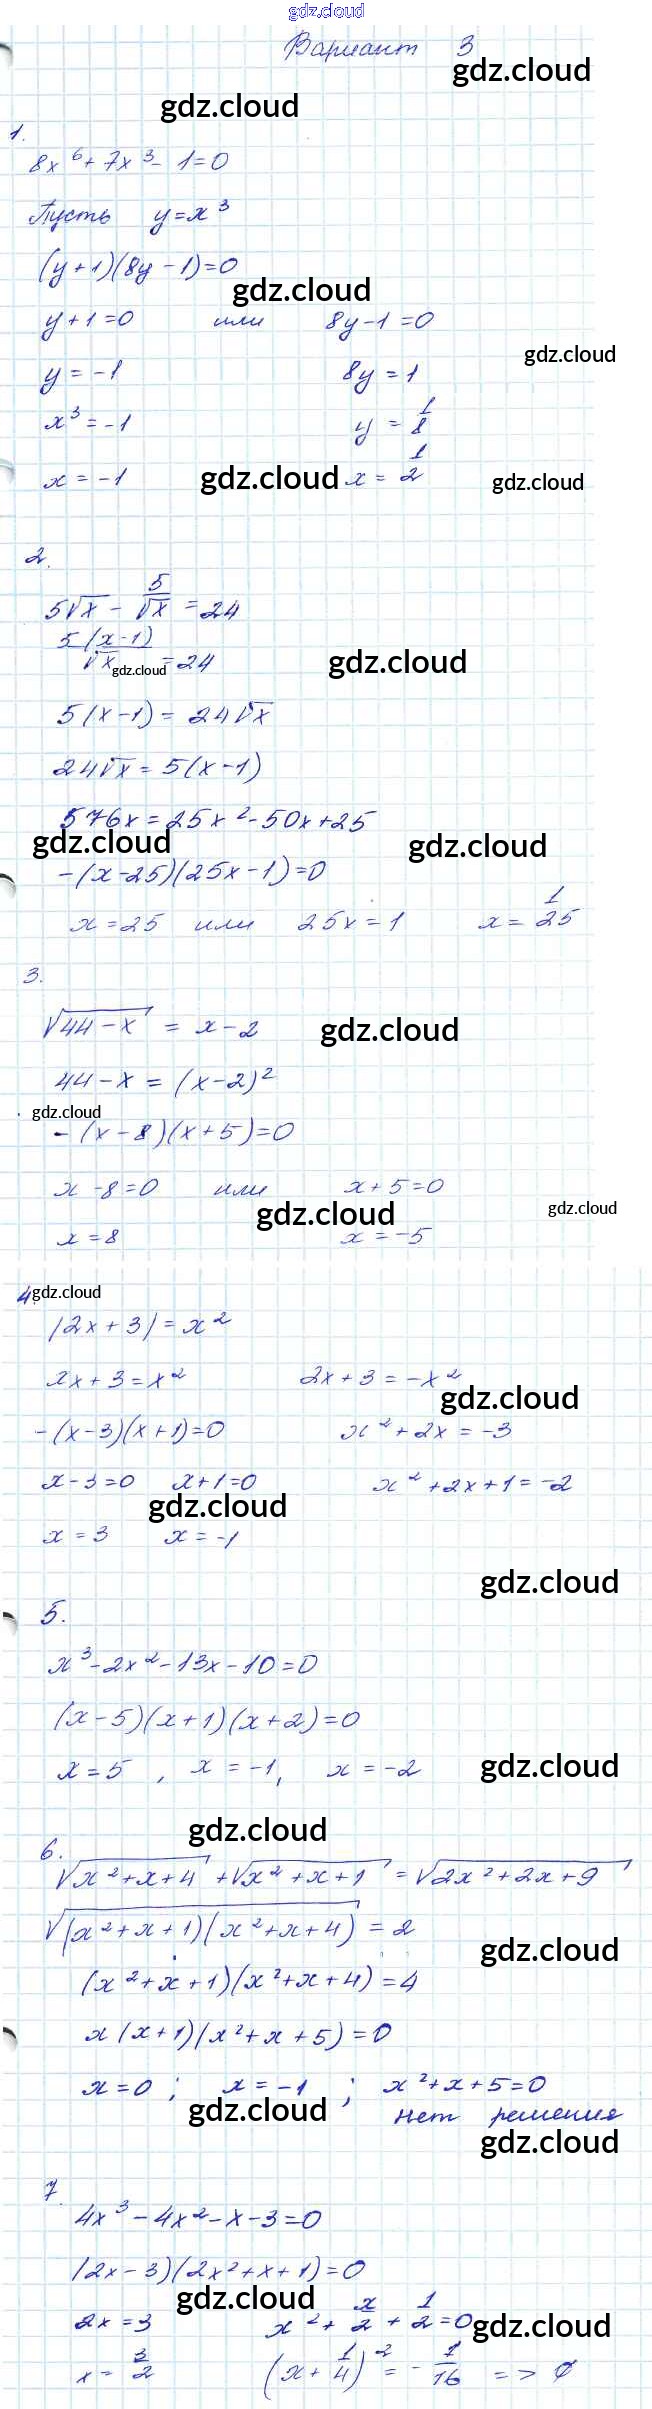 gdz.cloud
Вариант 3
gdz.cloud
gdz.cloud
1.
8x⁶ + 7x³ - 1 = 0
Пусть y = x³
(y + 1)(8y - 1) = 0
gdz.cloud
y + 1 = 0 или 8y - 1 = 0
gdz.cloud
y = -1 8y = 1
x³ = -1 y = 1/8
x = -1 gdz.cloud x = 1/2 gdz.cloud
2.
5√x - 5/√x = 24
5(x-1)/√x = 24
gdz.cloud gdz.cloud
5(x-1) = 24√x
24√x = 5(x-1)
576x = 25x² - 50x + 25
gdz.cloud gdz.cloud
-(x-25)(25x-1) = 0
x = 25 или 25x = 1 x = 1/25
3.
√(44-x) = x - 2 gdz.cloud
44 - x = (x-2)²
gdz.cloud
-(x-8)(x+5) = 0
x - 8 = 0 или x + 5 = 0
gdz.cloud gdz.cloud
x = 8 x = -5
4 gdz.cloud
|2x + 3| = x²
2x + 3 = x² 2x + 3 = -x²
gdz.cloud
-(x-3)(x+1) = 0 x² + 2x = -3
x - 3 = 0 x + 1 = 0 x² + 2x + 1 = -2
gdz.cloud
x = 3 x = -1
gdz.cloud
5.
x³ - 2x² - 13x - 10 = 0
(x-5)(x+1)(x+2) = 0
x = 5, x = -1, x = -2 gdz.cloud
gdz.cloud
6.
√(x²+x+4) + √(x²+x+1) = √(2x²+2x+9)
√((x²+x+1)(x²+x+4)) = 2
gdz.cloud
(x²+x+1)(x²+x+4) = 4
x(x+1)(x²+x+5) = 0
x = 0; x = -1; x²+x+5 = 0
gdz.cloud нет решения
gdz.cloud
7.
4x³ - 4x² - x - 3 = 0
(2x-3)(2x²+x+1) = 0
gdz.cloud gdz.cloud
2x = 3 x² + x/2 + 1/2 = 0
x = 3/2 (x + 1/4)² = -1/16 => ∅